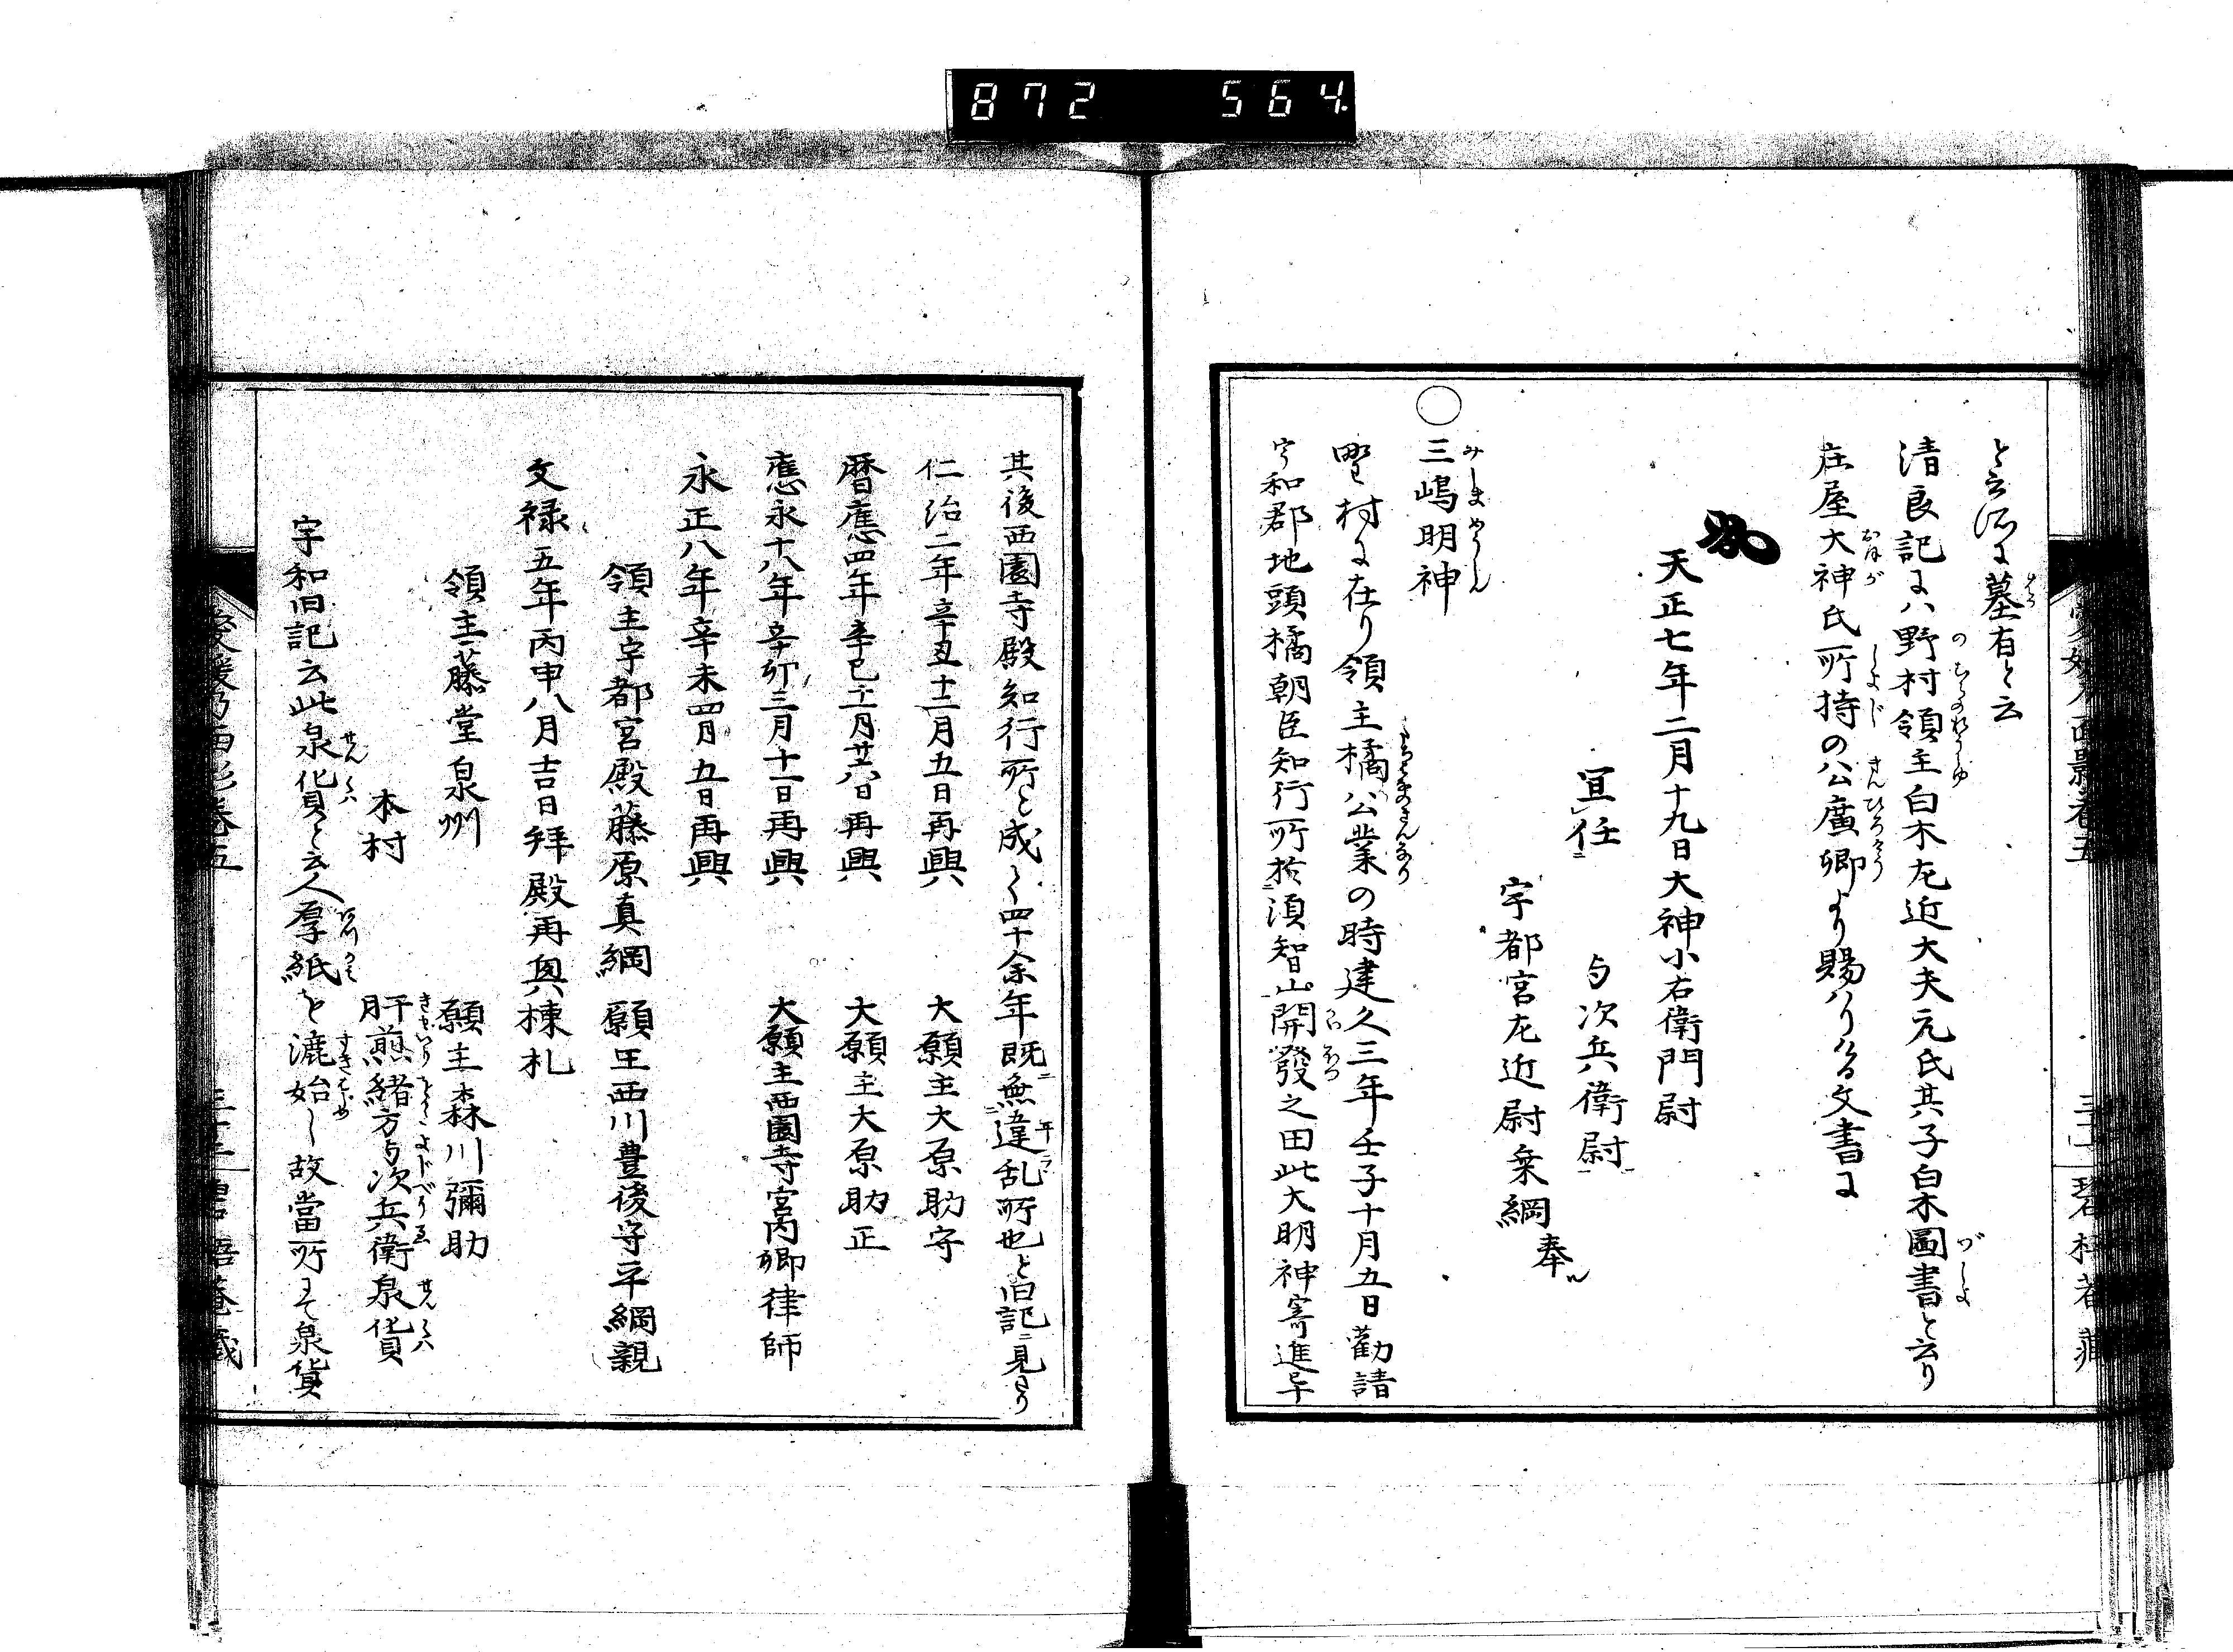 872 564
と云所に墓有と云
清良記に八野村領主白木左近大夫元氏其子白木圖書と云り
庄屋大神氏所持の公廣卿より賜はりける文書に
天正七年二月十九日大神小右衛門尉
宣任 与次兵衛尉
宇都宮左近尉乗綱奉
○三嶋明神
野村に在り領主橘公業の時建久三年壬子十月五日勸請
宇和郡地頭橘朝臣知行所於須智山開發之田此大明神寄進
其後西園寺殿知行所と成て四十余年既無違乱所也と旧記ニ見えり
仁治二年辛丑十二月五日再興 大願主大原助守
暦應四年辛巳十二月廿八日再興 大願主大原助正
應永十八年辛卯三月十一日再興 大願主西園寺宮内卿律師
永正八年辛未四月九日再興
領主宇都宮殿藤原真綱 願主西川豊後守平綱親
文禄五年丙申八月吉日拜殿再興棟札
領主藤堂泉州 願主森川彌助
本村 肝煎緒方与次兵衛泉貨
宇和旧記云此泉化貝と云人厚紙を漉始し故當所にて泉貨
愛媛乃面影巻五